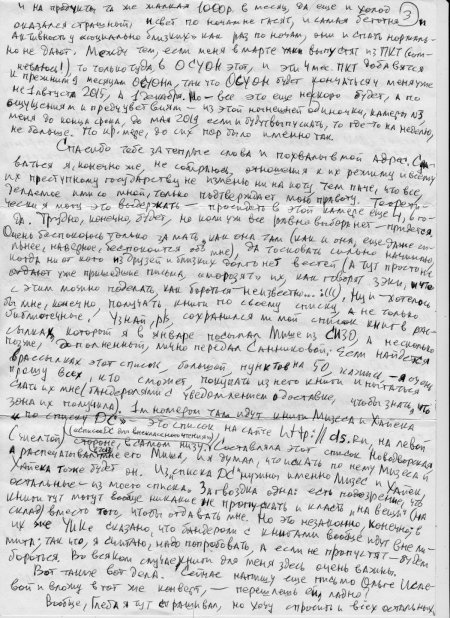 и на продукты, та же жалкая 1000р. в месяц, да еще и холод 3
оказался страшный, и свет по ночам не гасят, и самая беготня и
активность у "социально близких" как раз по ночам, они и спать нормаль-
но не дают. Между тем, если меня в марте выпустят из ПКТ (сом-
неваюсь!), то только туда, в ОСУОН этот, и эти 4 мес. ПКТ добавятся
к прежним 9 месяцам ОСУОНа, так что ОСУОН будет кончаться у меня уже
не 1 августа 2015, а 1 декабря. Но - все это еще не скоро будет, а по
ощущениям и предчувствиям - из этой нынешней одиночки, камеры №3
меня до конца срока, до мая 2019 если и будут выпускать, то где-то на неделю,
не больше. По кр. мере, до сих пор было именно так.
Спасибо тебе за теплые слова и похвалы в мой адрес. Сда-
ваться я, конечно же, не собираюсь, отношения к их режиму и всему
их преступному государству не изменю ни на йоту, тем паче, что все,
делаемое ими со мной, только подтверждает мою правоту. Теорети-
чески я могу это выдержать - просидеть в этой камере еще 4,6 го-
да. Трудно, конечно, будет, но коли уж все равно выбора нет - придется.
Очень беспокоюсь только за мать, как она там (как и она, еще даже си-
льнее, наверное, беспокоится обо мне), да тосковать сильно начинаю,
когда ни от кого из друзей и близких долго нет вестей (а тут просто не
отдают уже пришедшие письма, "морозят" их, как говорят зэки, и что
с этим можно поделать, как бороться - неизвестно...:(((). Ну и - хотелось
бы мне, конечно, получать книги по своему списку, а не только
библиотечные! Узнай, pls, сохранился ли мой список книг в рас-
сылках, который я в январе посылал Мише из СИЗО, а несколько
позже, дополненный, лично передал Санниковой. Если найдется
в рассылках этот список, большой, пунктов на 50, кажись, - я очень
прошу всех, кто сможет, покупать из него книги и пытаться
слать их мне (бандеролями с уведомлением о доставке, чтобы знать, что
зона их получила). 1м номером там идут книги Мизеса и Хайека
"по списку DC" - это список на сайте http://ds.ru, на левой
(желтой) стороне, в самом низу. (Составляла этот список Новодворская
а распечатывал мне его Миша, и я думал, что искать по нему Мизеса и
Хайека тоже будет он. Из списка DC нужны именно Мизес и Хайек,
остальные - из моего списка. Загвоздка одна: есть подозрение, что
книги тут могут вообще никакие не пропускать и класть "на вещи" (на
склад) вместо того, чтобы отдавать мне. Но это незаконно, конечно; в
их же УИКе сказано, что бандероли с книгами вообще идут вне ли-
мита; так что, я считаю, надо попробовать, а если не пропустят - будем
бороться. Во всяком случае, книги для меня здесь очень важны.
Вот такие вот дела. Сейчас напишу еще письмо Ольге Исае-
вой и вложу в этот же конверт, - перешлешь ей, ладно?
Вообще, Глеба я тут спрашивал, но хочу спросить и всех остальных,